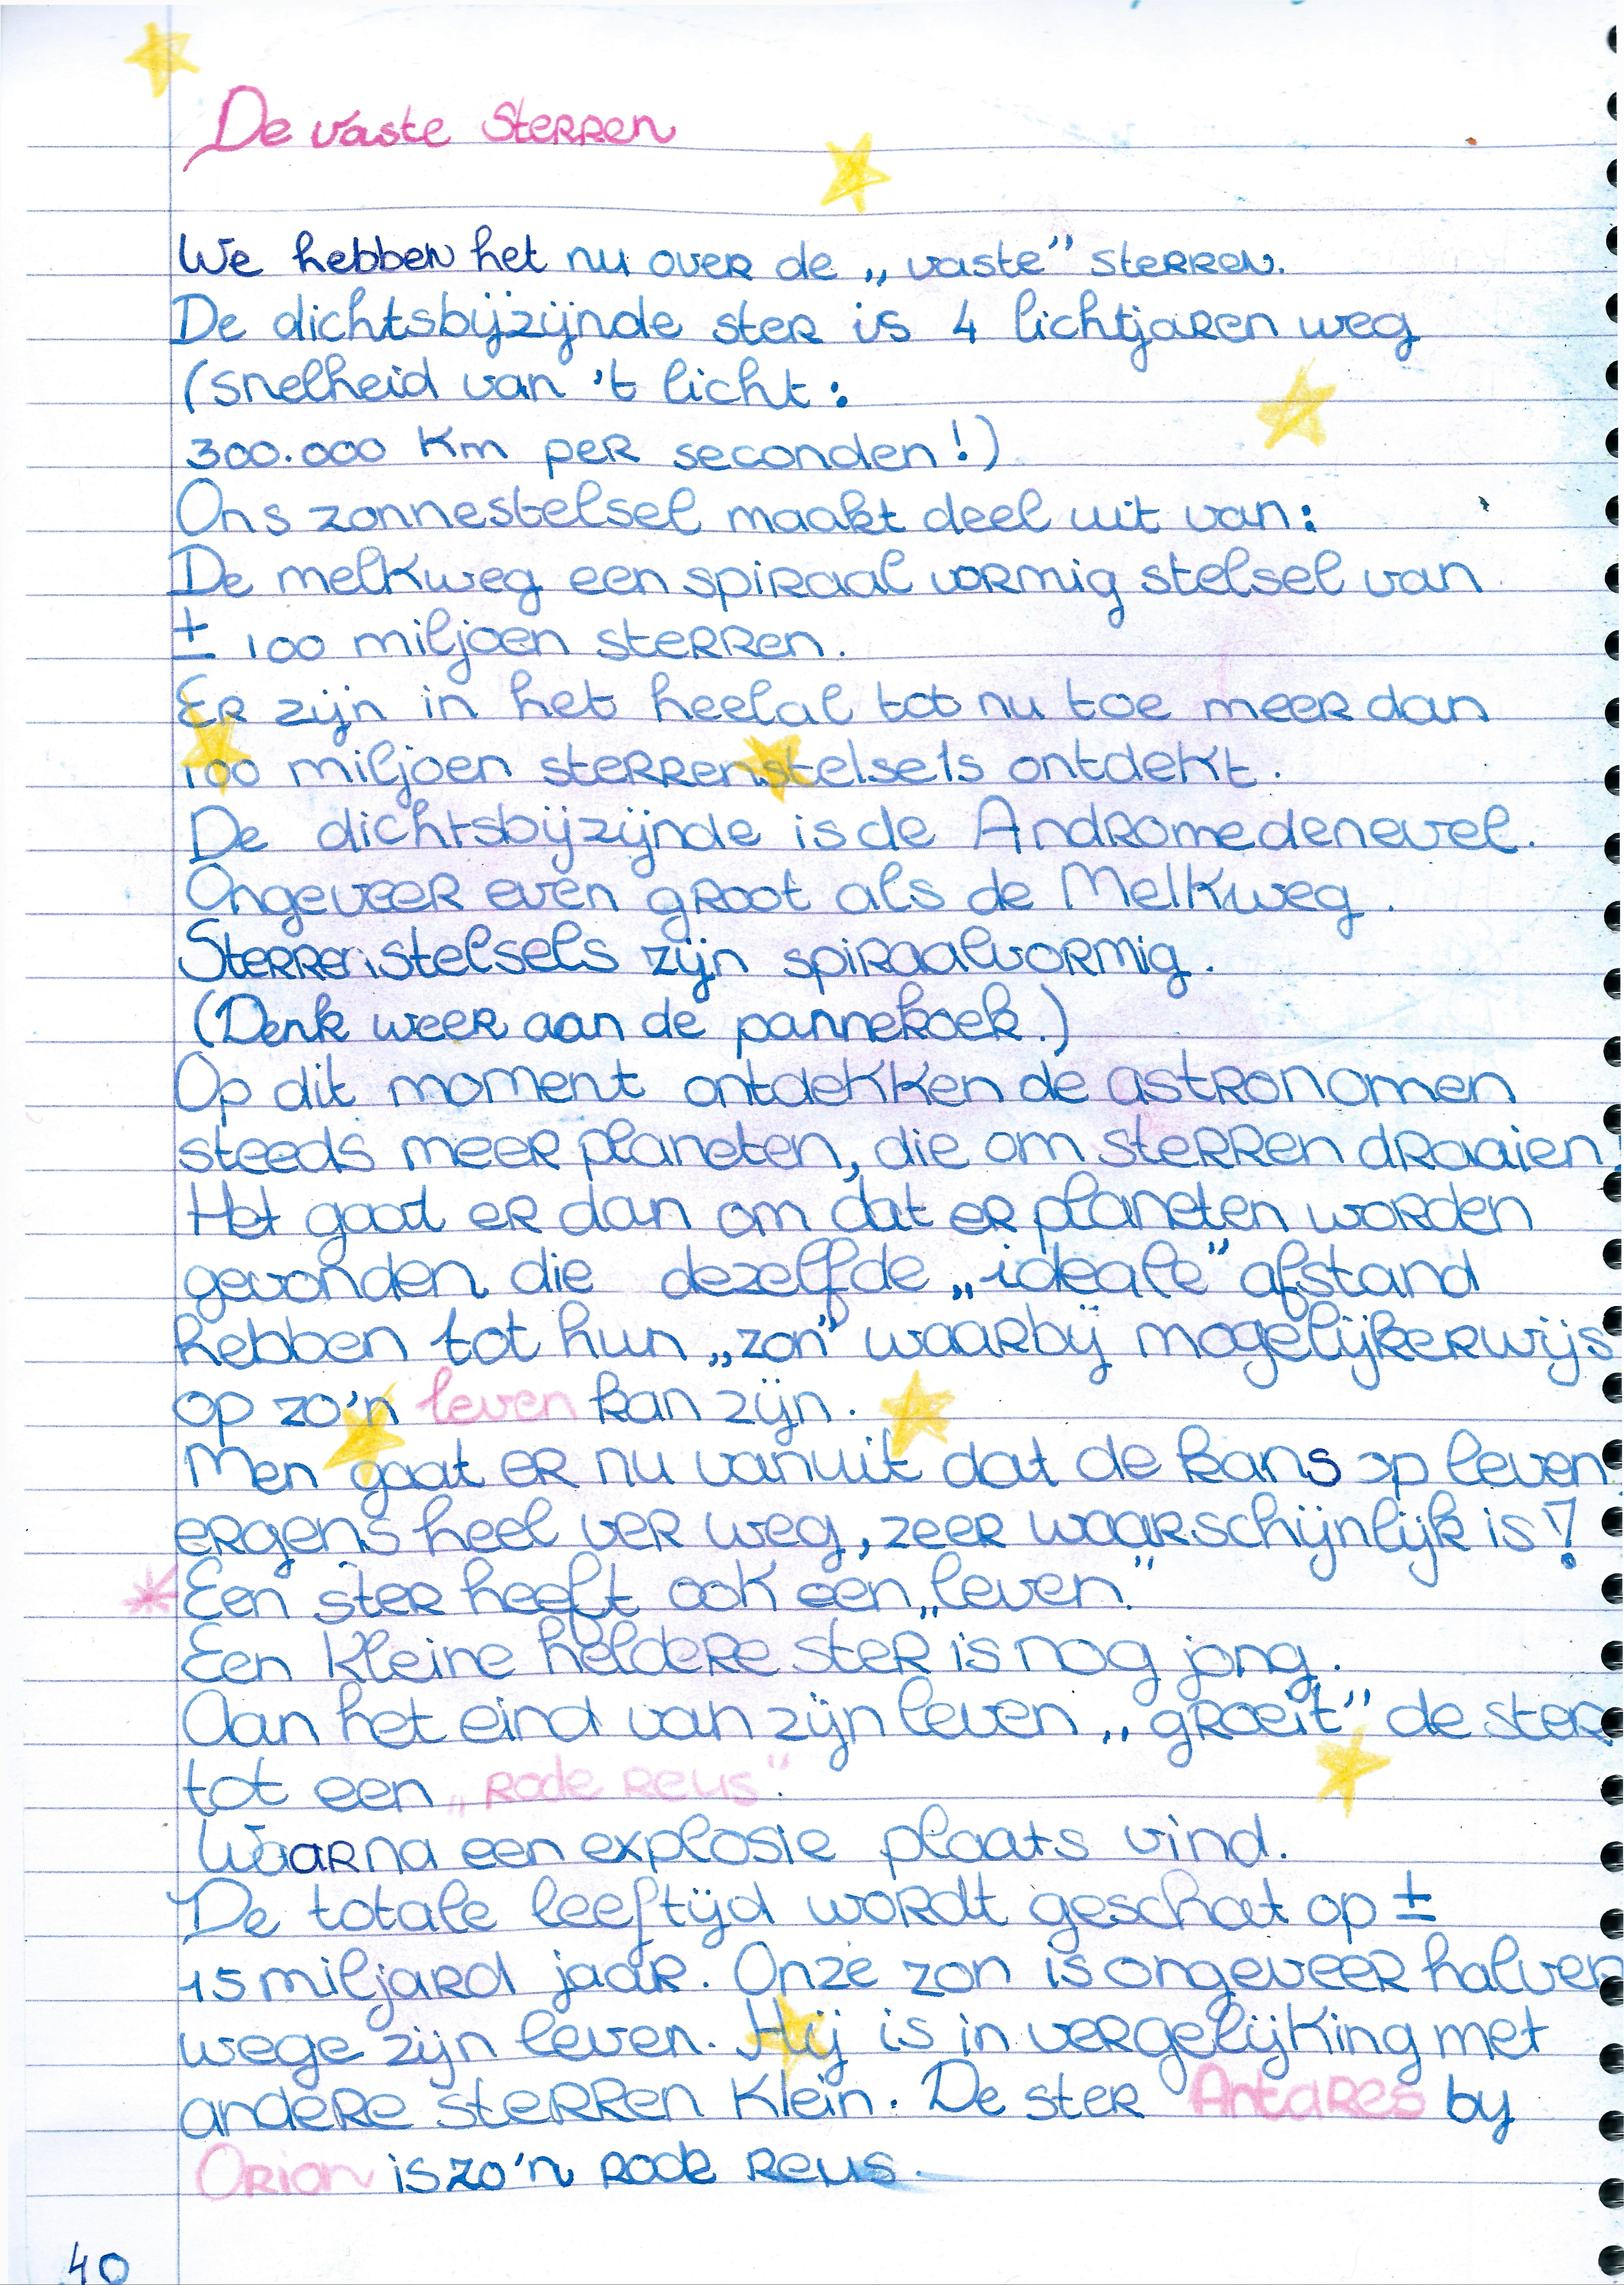 De vaste sterren
We hebben het nu over de „vaste” sterren.
De dichtsbijzijnde ster is 4 lichtjaren weg
(snelheid van 't licht:
300.000 km per seconden!)
Ons zonnestelsel maakt deel uit van:
De melkweg een spiraal vormig stelsel van
± 100 miljoen sterren.
Er zijn in het heelal tot nu toe meer dan
100 miljoen sterrenstelsels ontdekt.
De dichtsbijzijnde is de Andromedenevel.
Ongeveer even groot als de Melkweg.
Sterrenstelsels zijn spiraalvormig.
(Denk weer aan de pannekoek.)
Op dit moment ontdekken de astronomen
steeds meer planeten, die om sterren draaien!
Het gaat er dan om dat er planeten worden
gevonden die dezelfde „ideale” afstand
hebben tot hun „zon” waarbij mogelijkerwijs
op zo'n leven kan zijn.
Men gaat er nu vanuit dat de kans op leven
ergens heel ver weg, zeer waarschijnlijk is!
* Een ster heeft ook een „leven.”
Een kleine heldere ster is nog jong.
Aan het eind van zijn leven „groeit” de ster
tot een „rode reus”.
Waarna een explosie plaats vind.
De totale leeftijd wordt geschat op ±
15 miljard jaar. Onze zon is ongeveer halver
wege zijn leven. Hij is in vergelijking met
andere sterren klein. De ster Antares by
Orion is zo'n rode reus.
40